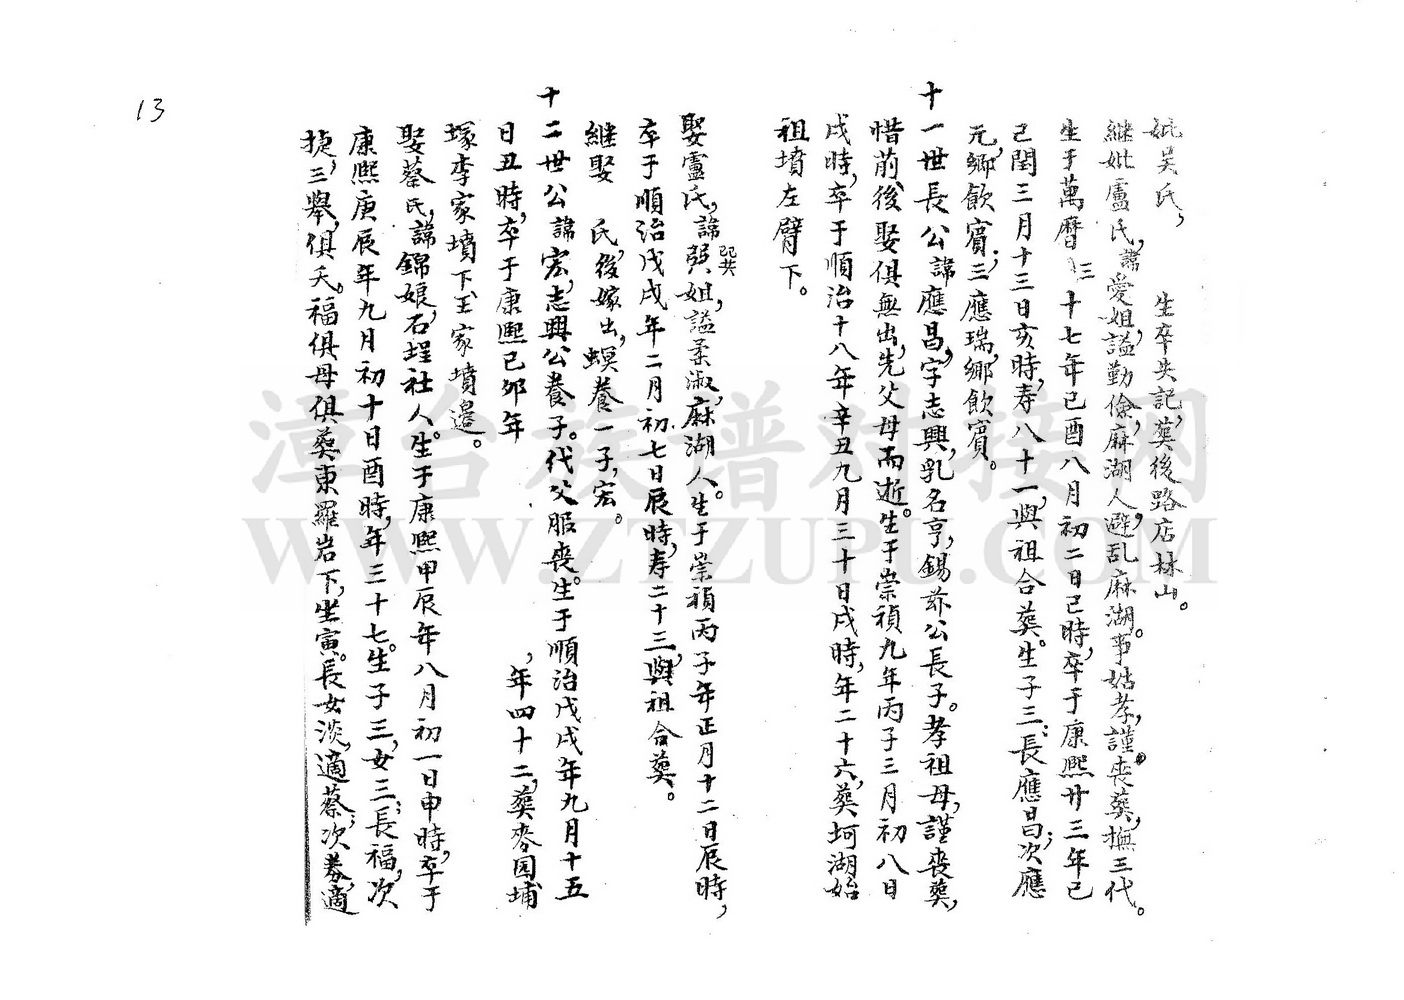 13
妣吳氏，　生卒失記，葬後路店林山。
継妣盧氏，諱愛姐，謚勤儉，麻湖人，避乱麻湖。事姑孝，謹喪葬，撫三代。
生于萬曆三十七年己酉八月初二日巳時，卒于康熙廿三年己
己閏三月十三日亥時，寿八十一，與祖合葬。生子三：長應昌；次應
元，鄉飲賓；三應瑞，鄉飲賓。
十一世長公諱應昌，字志興，乳名亨，錫爺公長子。孝祖母，謹喪葬，
惜前後娶俱無出，先父母而逝。生于崇禎九年丙子三月初八日
戌時，卒于順治十八年辛丑九月三十日戌時，年二十六，葬坷湖始
祖墳左臂下。
娶盧氏，諱巽姐，謚柔淑，麻湖人。生于崇禎丙子年正月十二日辰時，
卒于順治戊戌年二月初七日辰時，寿二十三，與祖合葬。
継娶　氏，後嫁出，螟養一子，宏。
十二世公諱宏，志興公養子。代父服喪。生于順治戊戌年九月十五
日丑時，卒于康熙己卯年　，年四十二，葬麥园埔
塚李家墳下，王家墳邊。
娶蔡氏，諱錦娘，石埕社人。生于康熙甲辰年八月初一日申時，卒于
康熙庚辰年九月初十日酉時，年三十七。生子三，女三：長福，次
捷，三舉，俱夭。福俱母俱葬東羅岩下，坐寅。長女淡，適蔡；次養，適
漳台族谱对接网
WWW.ZTZUPU.COM